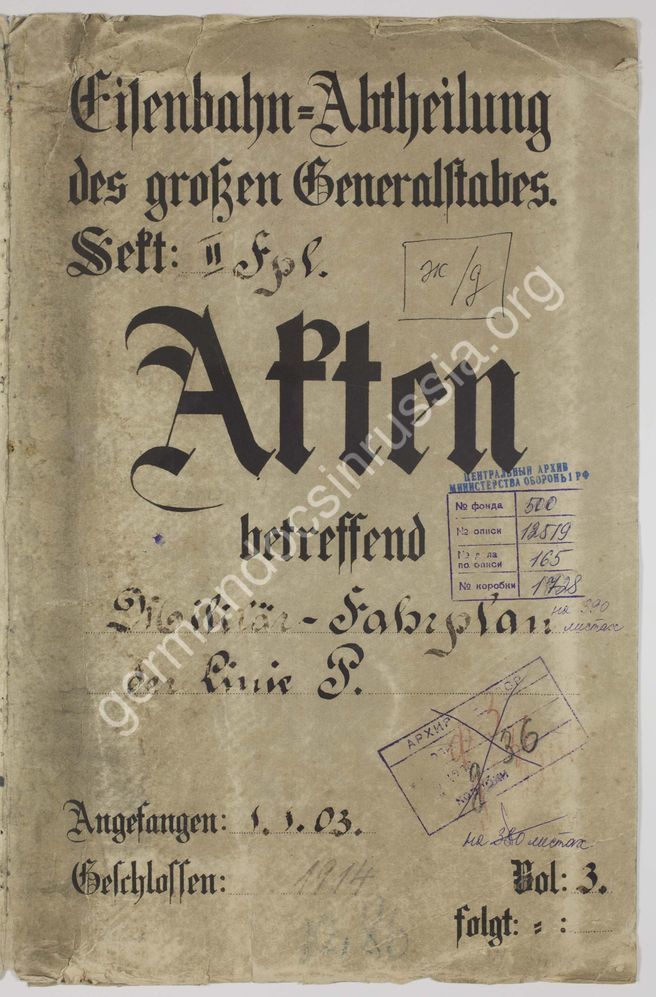 Eisenbahn=Abtheilung
des großen Generalstabes.
Sekt: II Fpl.
ж/д
Akten
ЦЕНТРАЛЬНЫЙ АРХИВ
МИНИСТЕРСТВА ОБОРОНЫ РФ
№ фонда 500
№ описи 12519
№ дела по описи 165
№ коробки 1728
betreffend
на 390 листах
Militär-Fahrplan
der Linie P.
germandocsinrussia.org
АРХИВ
36
на 380 листах
Angefangen: 1.1.03.
Geschlossen: 1914
Vol: 3.
folgt: = :